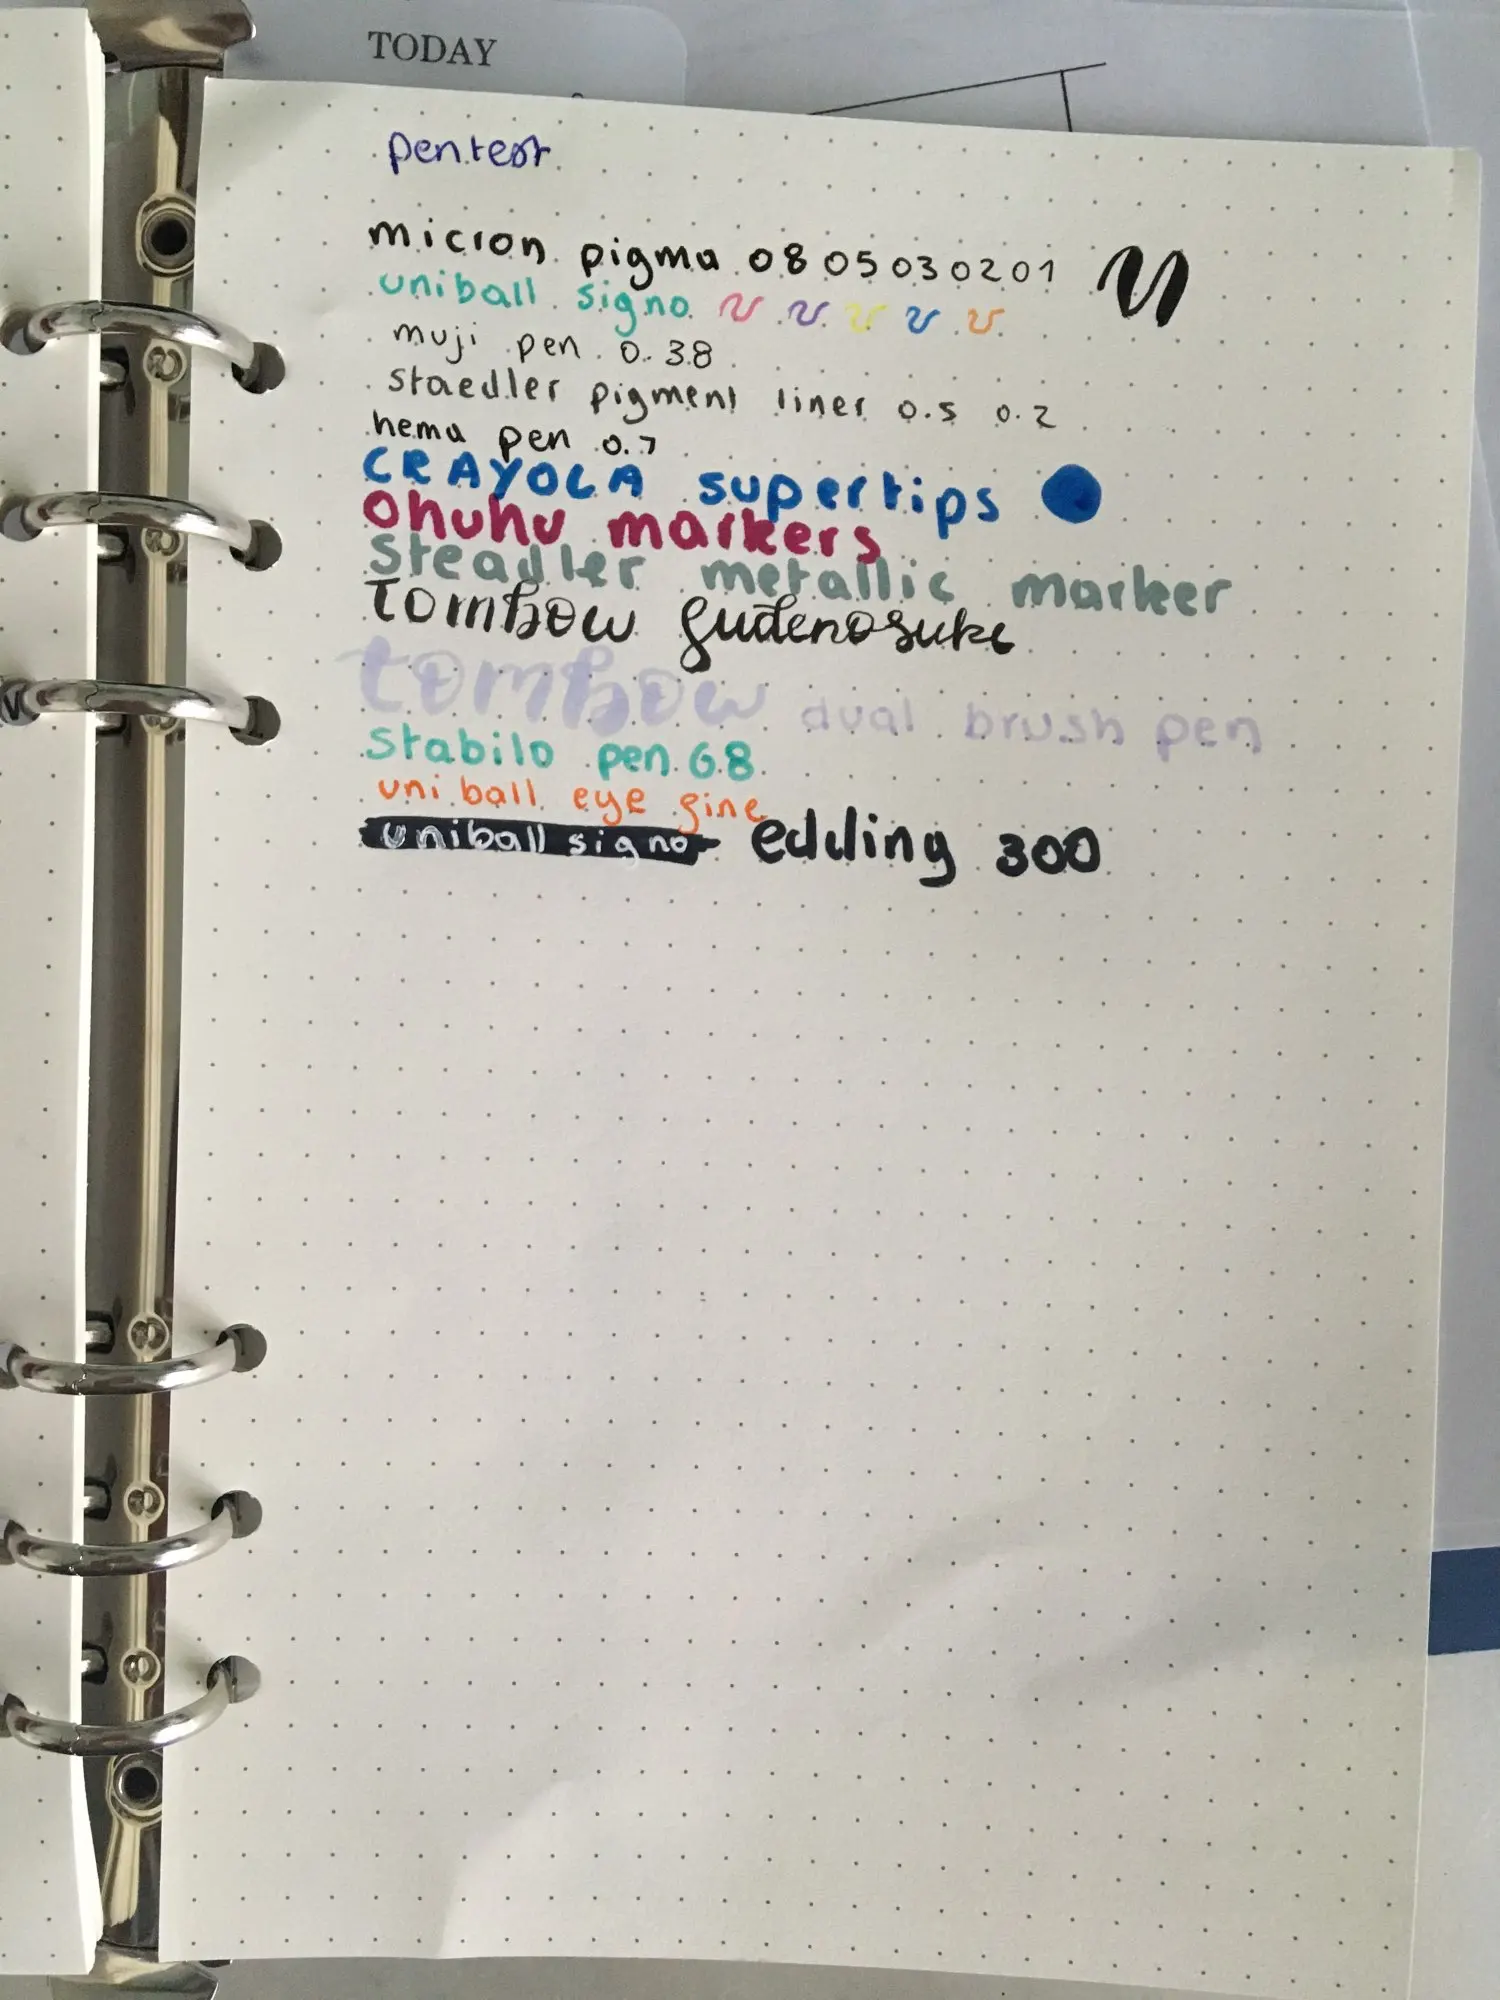 TODAY
pentest
micron pigma 08 05 03 02 01
uniball signo
muji pen 0.38
staedler pigment liner 0.5 0.2
hema pen 0.7
CRAYOLA supertips
Ohuhu markers
Steadler metallic marker
Tombow fudenosuke
tombow dual brush pen
Stabilo pen 68
uni ball eye fine
uniball signo edding 300